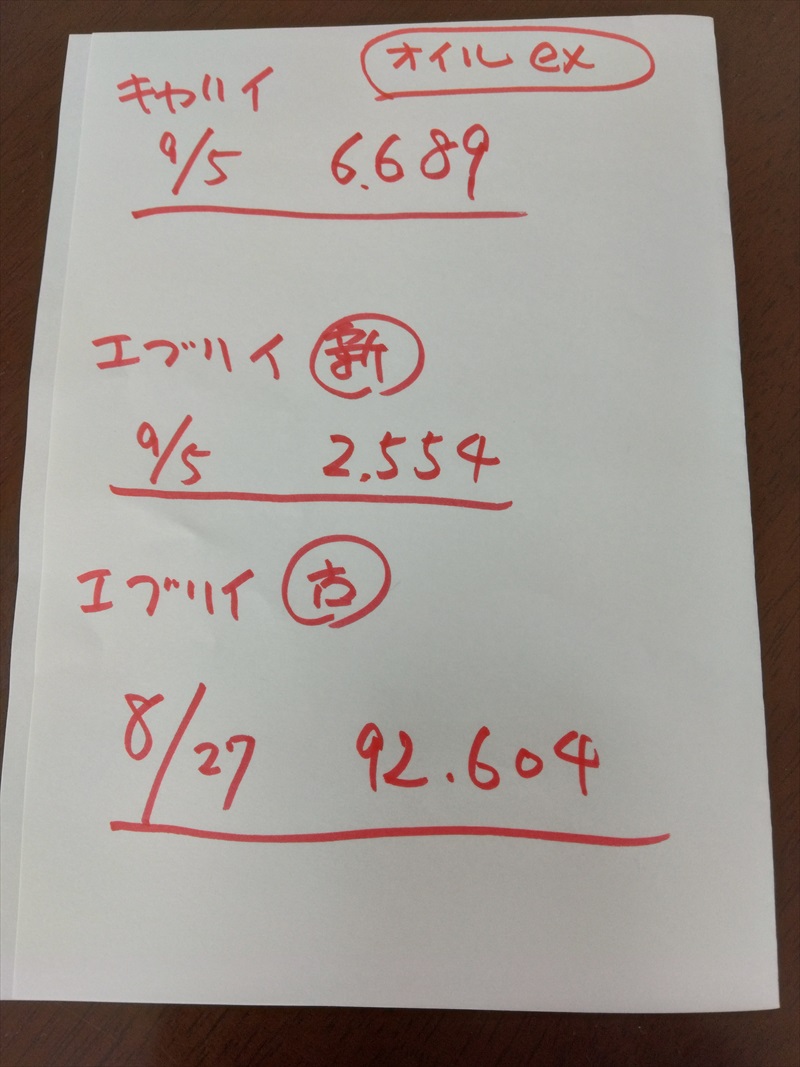 オイル ex
キャハイ
9/5 6.689
エブリイ 新
9/5 2.554
エブリイ 古
8/27 92.604